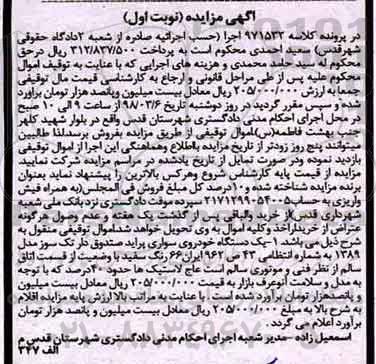 آگهی مزایده (نوبت اول)
در پرونده کلاسه ۹۷۱۵۳۲ اجرا (حسب اجرائیه صادره از شعبه ۲دادگاه حقوقی
شهرقدس) سعید احمدی محکوم است به پرداخت ۳۱۲/۸۳۷/۵۰۰ ریال درحق
محکوم له سید حامد محمدی و هزینه های اجرایی که با عنایت به توقیف اموال
محکوم علیه پس از طی مراحل قانونی و ارجاع به کارشناسی قیمت مال توقیفی
جمعا به ارزش ۲۰۵/۰۰۰/۰۰۰ ریال معادل بیست میلیون وپانصد هزار تومان برآورد
شده و سپس مقرر گردید در روز دوشنبه تاریخ ۹۸/۰۳/۶ از ساعت ۹ الی ۱۰ صبح
در محل اجرای احکام مدنی دادگستری شهرستان قدس واقع در بلوار شهید کلهر
جنب بهشت فاطمه(س)،اموال توقیفی از طریق مزایده بفروش برسد.لذا طالبین
میتوانند پنج روز زودتر از تاریخ مزایده بااطلاع وهماهنگی این اجرا از اموال توقیفی
بازدید نموده ودر صورت تمایل از تاریخ یادشده در مراسم مزایده شرکت نمایید.
مزایده از قیمت پایه کارشناس شروع وهرکس بالاترین را پیشنهاد نماید بعنوان
برنده مزایده شناخته شده و۱۰درصد کل مبلغ فروش فی المجلس(به همراه فیش
واریزی به حساب ۲۱۷۱۲۹۹۰۵۴۰۰۵ سپرده موقت دادگستری نزد بانک ملی شعبه
شهرداری قدس)از خرید والباقی پس از گذشت یک هفته و عدم وصول هرگونه
اعتراض از خریداراخذ وکلیه اموال به وی تحویل خواهد شد.اموال توقیفی منقول به
شرح ذیل می باشد. ۱-یک دستگاه خودروی سواری پراید صندوق دار تک سوز مدل
۱۳۸۹ به شماره انتظامی ۴۳ ص ۹۶۲ ایران۶۶ رنگ سفید با وضعیت از قسمت اتاق
سالم از نظر فنی و موتوری سالم است عاج لاستیک ها حدود ۴۰درصد که با توجه
به مدل و سلامت آنوعرف بازار به قیمت ۲۰۵/۰۰۰/۰۰۰ ریال معادل بیست میلیون
و پانصدهزار تومان برآورد شده است . با عنایت به مراتب بالا ارزش پایه مزایده اقلام
به شرح بالا به مبلغ ۲۰۵/۰۰۰/۰۰۰ ریال معادل بیست میلیون و پانصد هزار تومان
برآورد اعلام می گردد .
اسمعیل زاده -مدیر شعبه اجرای احکام مدنی دادگستری شهرستان قدس م
الف ۳۲۷